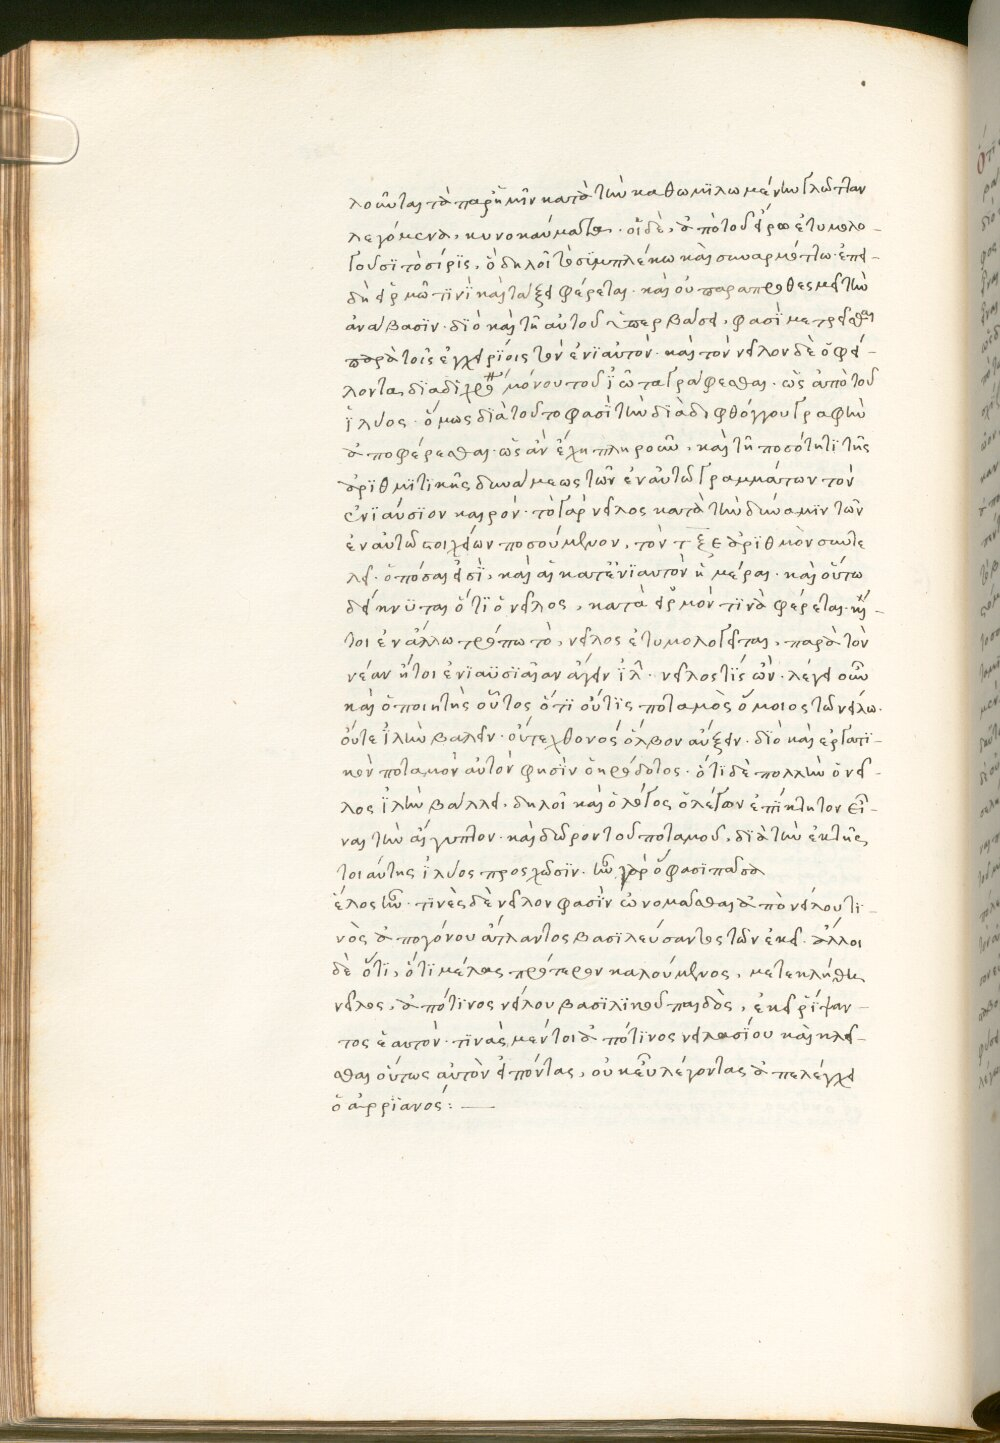 λοῦνται τὰ παρ' ἡμῖν κατὰ τὴν καθωμιλωμένην γλῶτταν
λεγόμενα, κυνοκαύματα. οἱ δὲ, ἀπὸ τοῦ εἴρω ἐτυμολο-
γοῦσι τὸ σίρις, ὃ δηλοῖ τὸ συμπλέκω καὶ συναρμόττω. ἐπεὶ
δὴ εἱρμῶ τινὶ καὶ τάξει φέρεται. καὶ οὐ παραπροθεσμεῖ τὴν
ἀνάβασιν. διὸ καὶ τῆ αὐτοῦ ὑπερβάσει, φασὶ μετρεῖσθαι
παρὰ τοῖς ἐγχωρίοις τὸν ἐνιαυτόν. καὶ τὸν νεῖλον δὲ ὀφεί-
λοντα διὰ διχρό μόνου τοῦ ἰῶτα γράφεσθαι. ὡς ἀπὸ τοῦ
ἰλύος. ὅμως διὰ τοῦτο φασὶ τὴν διὰ διφθόγγου γραφὴν
ἀποφέρεσθαι. ὡς ἂν ἔχη πληροῦν, καὶ τῆ ποσότητι τῆς
ἀριθμιτικῆς δυνάμεως τῶν ἐν αὐτῶ γραμμάτων τὸν
ἐνιαύσιον καιρόν. τὸ γὰρ νεῖλος κατὰ τὴν δύναμιν τῶν
ἐν αὐτῶ στοιχείων ποσούμενον, τὸν τξε ἀριθμὸν συντε
λεῖ. ὁπόσαι εἰσὶ, καὶ αἱ κατ' ἐνιαυτὸν ἡμέραι. καὶ οὕτω
δείκνυται ὅτι ὁ νεῖλος, κατὰ εἱρμόν τινὰ φέρεται. καί
τοι ἐν ἄλλω τρόπω τὸ, νεῖλος ἐτυμολογεῖται, παρὰ τὸν
νέαν ἤτοι ἐνιαυσιαῖαν ἄγειν ἰλ. νεῖλος τίς ὤν. λέγει οὖν
καὶ ὁ ποιητὴς οὗτος ὅτι οὔτις ποταμὸς ὅμοιος τῶ νείλω.
οὔτε ἰλὺν βαλεῖν. οὔτε χθονὸς ὄλβον αὔξειν. διὸ καὶ ἐργατι-
κὸν ποταμὸν αὐτὸν φησὶν ὁ ηρόδοτος. ὅτι δὲ πολλὴν ὁ νεῖ-
λος ἰλὺν βάλλει, δηλοῖ καὶ ὁ λόγος ὁ λέγων ἐπίκτητον εἶ-
ναι τὴν αἴγυπτον. καὶ δῶρον τοῦ ποταμοῦ, διὰ τὴν ἐκ τῆς
τοιαύτης ἰλύος πρόσχωσιν. ἦν γὰρ ὥς φασι πᾶσα
ἕλος ἦν. τινὲς δὲ νεῖλον φασὶν ὠνομᾶσθαι ἀπὸ νείλου τι-
νὸς ἀπογόνου ἄτλαντος βασιλεύσαντος τῶν ἐκεῖ. ἄλλοι
δὲ ὅτι, ὅτι μέλας πρότερον καλούμενος, μετεκλήθη
νεῖλος, ἀπό τινος νείλου βασιλικοῦ παιδὸς, ἐκεῖ ῥίψαν-
τος ἑαυτόν. τινὰς μέντοι ἀπό τινος νειλασίου καὶ κλεῖ-
σθαι οὕτως αὐτὸν εἰπόντας, οὐκ εὖ λέγοντας ἀπελέγχει
ὁ ἀρριανός:—